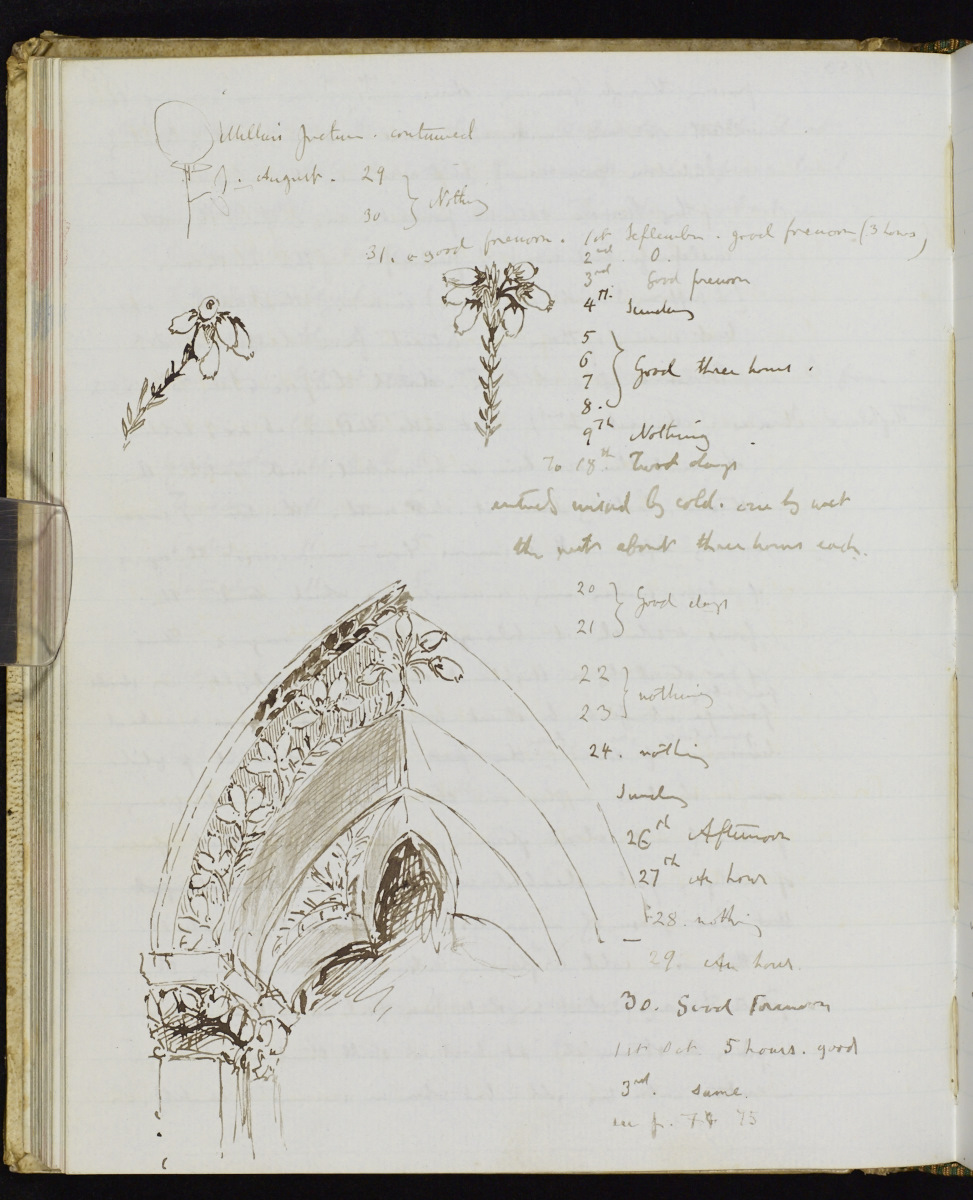 Millais picture. continued
August. 29
30 } Nothing
31. a good forenoon. 1st September. good forenoon (3 hours)
2nd. 0.
3rd Good forenoon
4th. Sunday
5
6
7
8. } Good three hours.
9th Nothing
To 18th Two days
entirely missed by cold. one by wet
the rest about three hours each.
20
21 } Good days
22
23 } nothing
24. nothing
Sunday
26th Afternoon
27th An hour
28. nothing
29. An hour.
30. Good Forenoon
1st Oct 5 hours. good
3rd. same.
see p. 75